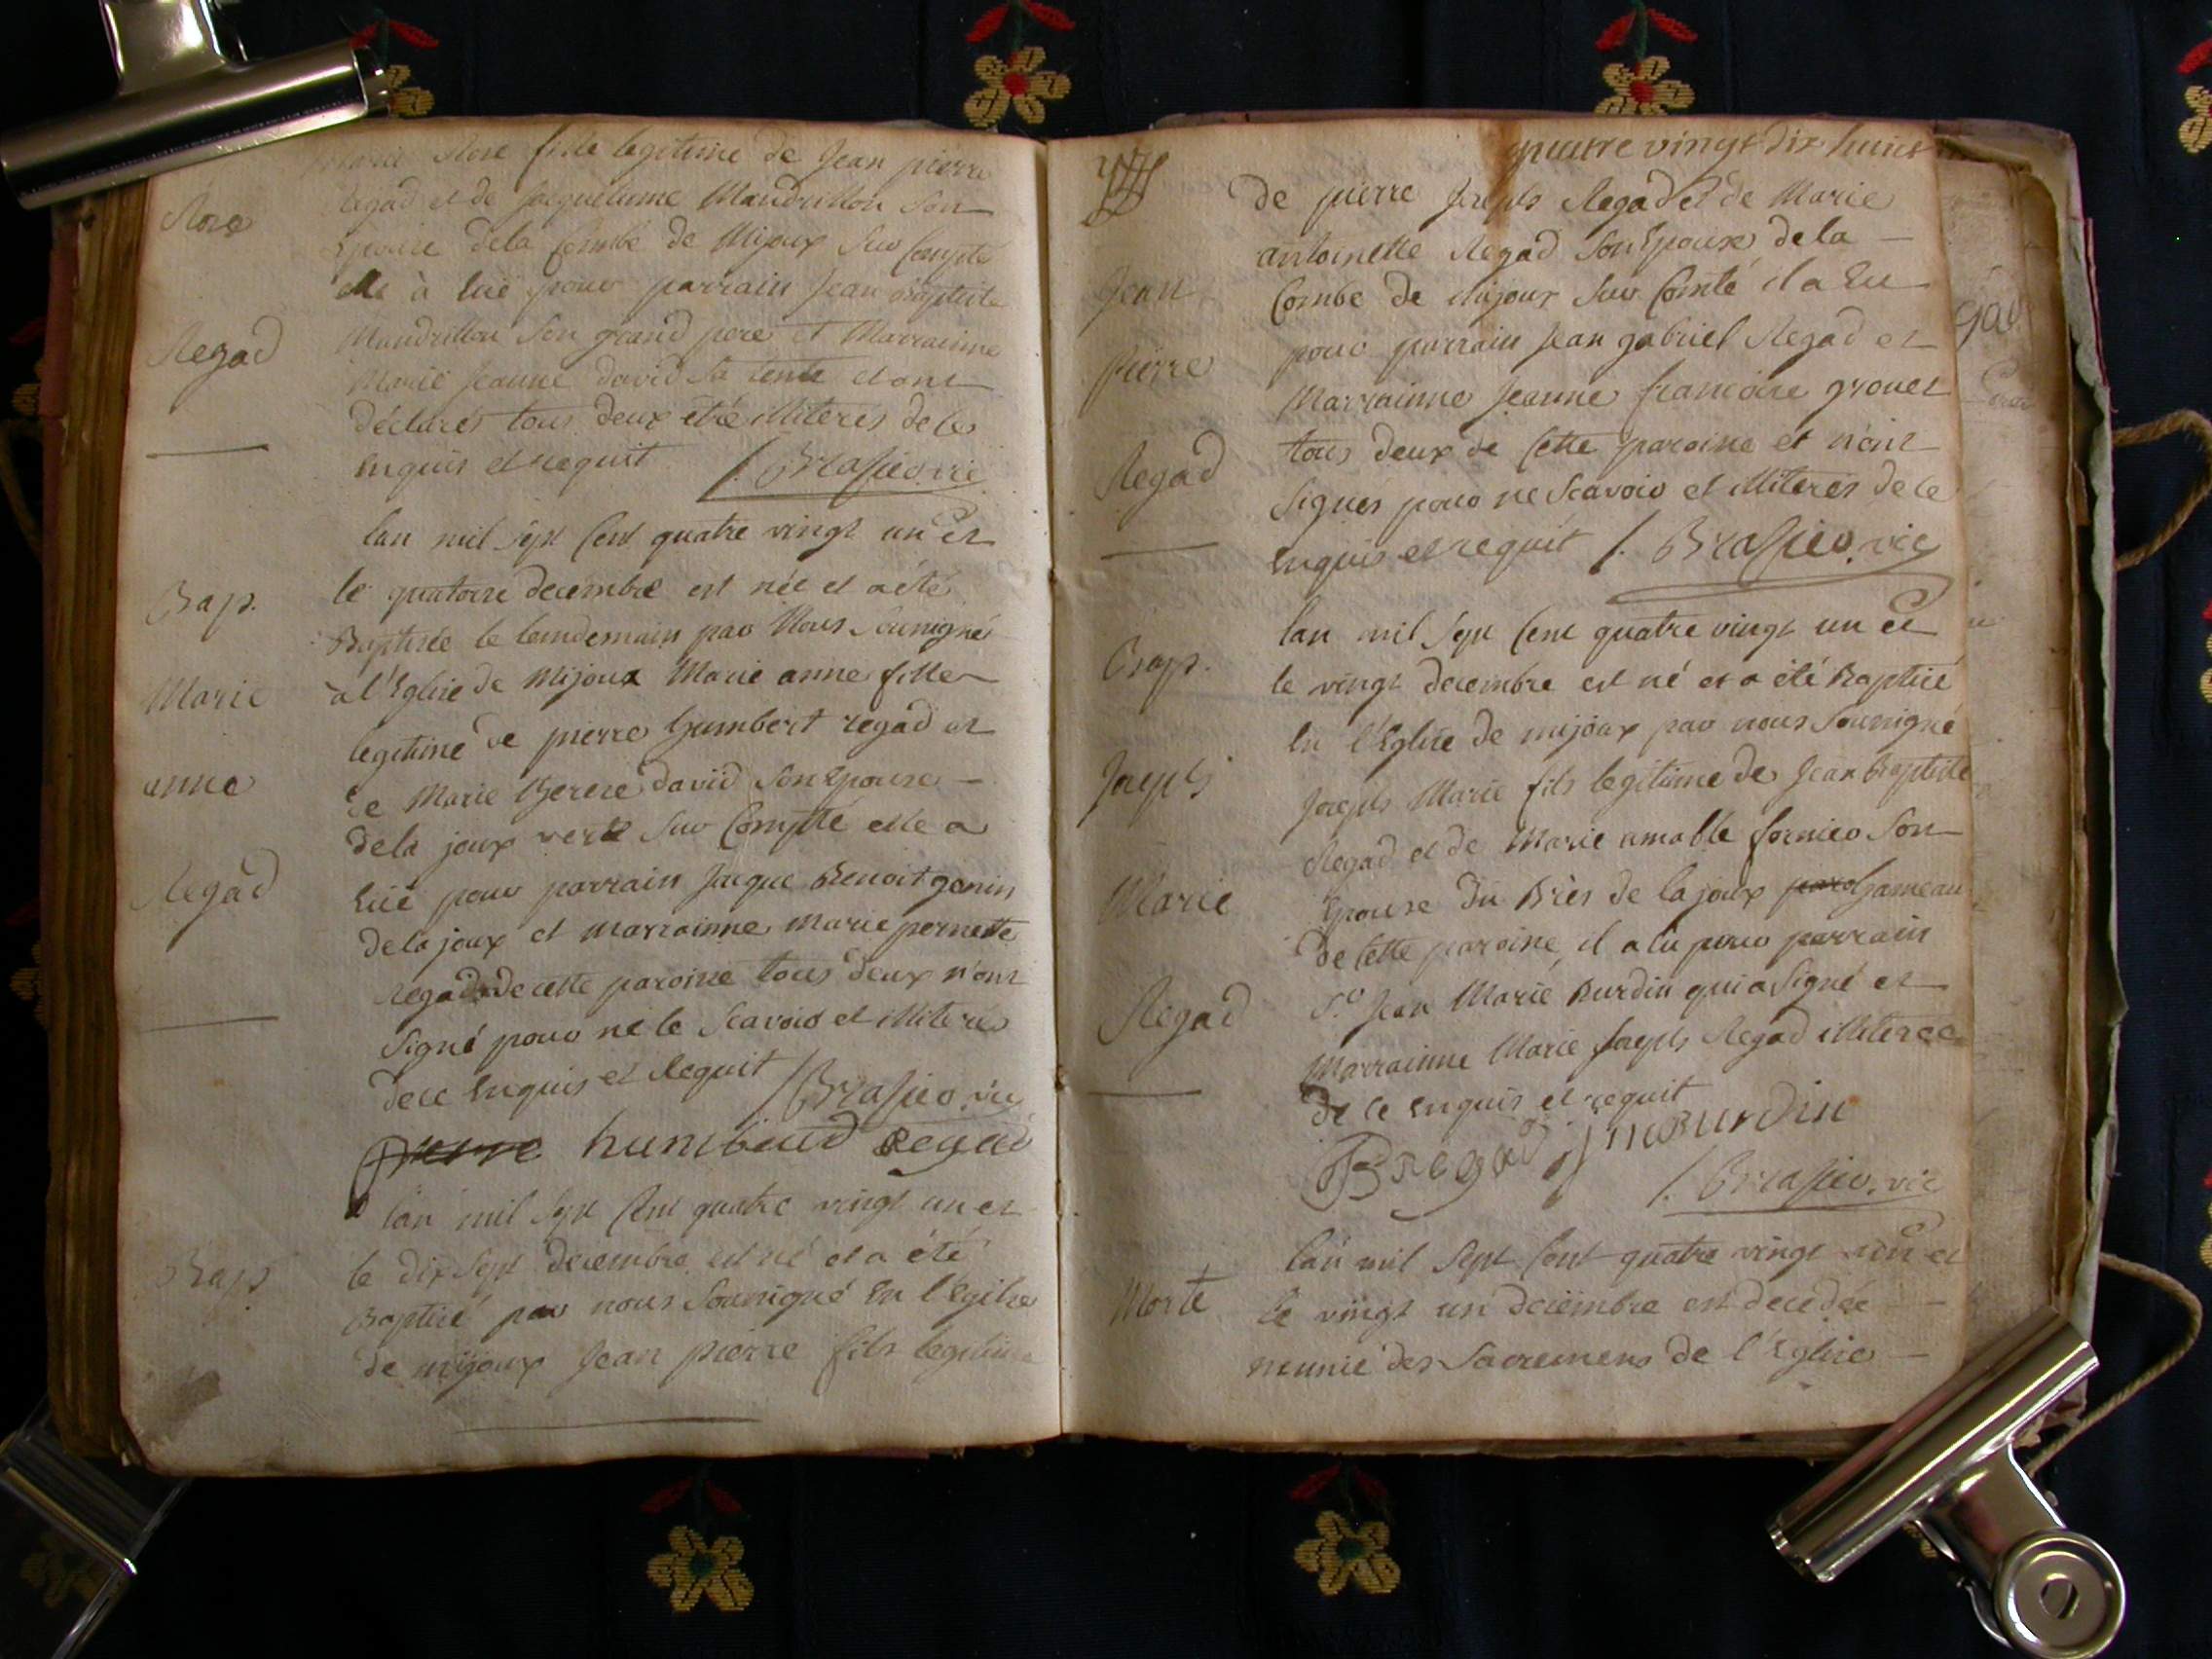 Marie Rose fille legitime de Jean pierre
Rose
Regad et de Jacqueline Maudrillon Son
Epouse dela Combe de Mijoux Sur Compté
elle à Eüe pour parrain Jean Baptiste
Regad
Maudrillon Son grand pere et Marrainne
Marie Jeanne david Sa tente et ont
déclarés tous deux etre illiterés de ce
Enquis et requit J. Brasier vic
Bap.
Marie
anne
Regad
lan mil Sept Cent quatre vingt un et
le quatorze decembre est née et a été
Baptisée le lendemain par Nous Sousigné
à l'Eglise de Mijoux Marie anne fille
legitime de pierre humbert regad et
de Marie therese david Son Epouse
dela joux verte Sur Comptté elle a
Eüe pour parrain Jacque Benoit gonin
dela joux et marrainne Marie pernette
regad de cette paroisse tous deux n'ont
Signé pour ne le Scavoir et illiterés
dece Enquis et Requit J Brasier vic
pierre humberd Regad
Bap
lan mil Sept Cent quatre vingt un et
le dix Sept decembre est né et a été
Baptisé par nous Sousigné En l'Eglise
de mijoux Jean pierre fils legitime
quatre vingt dix huict
Jean
pierre
Regad
de pierre Joseph Regad et de Marie
antoinette Regad Son Epouse dela
Combe de mijoux Sur Comté il a Eu
pour parrain Jean gabriel Regad et
Marrainne Jeanne francoise grouez
tous deux de Cette paroisse et n'ont
Signés pour ne Scavoir et illiterés de ce
Enquis et requit J. Brasier vic
Bap.
Joseph
Marie
Regad
lan mil Sept Cent quatre vingt un et
le vingt decembre est né et a été Baptisé
En l'Eglise de mijoux par nous Sousigné
Joseph Marie fils legitime de Jean Baptiste
Regad et de Marie amable fornier Son
Epouse du Briés de la joux paro hameau
de Cette paroisse, il a Eu pour parrain
Sr. Jean Marie Burdin qui a Signé et
Marrainne Marie Joseph Regad illiterée
de ce Enquis et requit
JB regad jmburdin
J. Brasier, vic
Morte
lan mil Sept Cent quatre vingt un et
le vingt un decembre est decedée
munie des Sacremens de l'Eglise